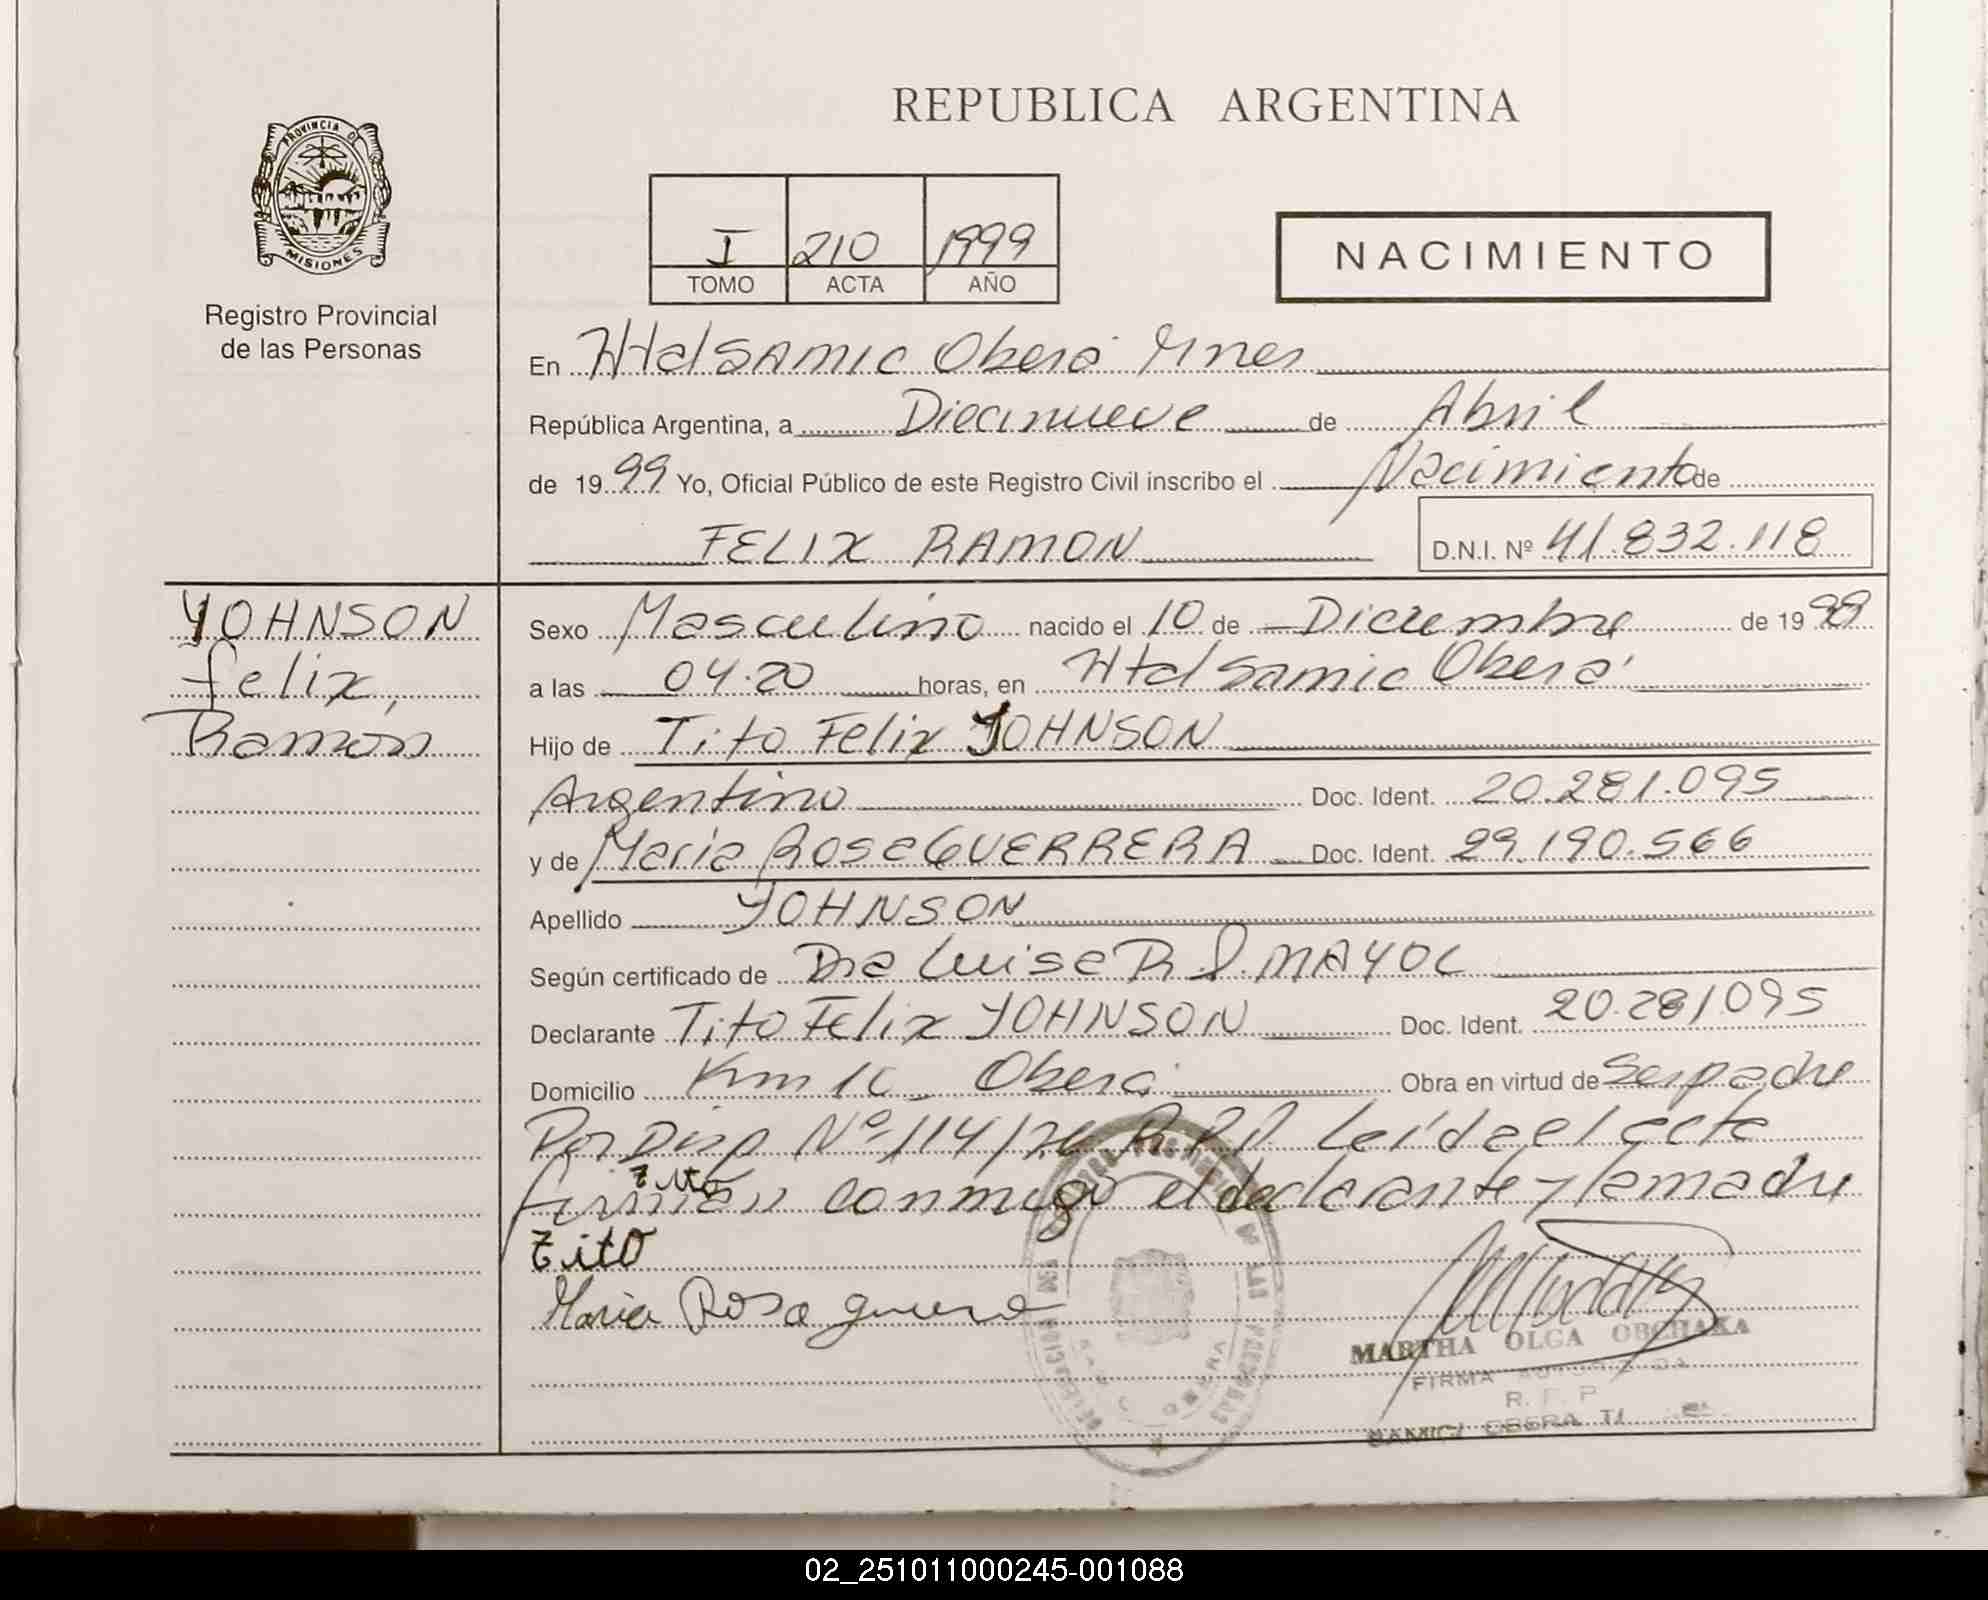 REPUBLICA ARGENTINA
PROVINCIA DE
MISIONES
Registro Provincial
de las Personas
I 210 1999
TOMO ACTA AÑO
NACIMIENTO
En Htal SAMIC Oberá Mnes
República Argentina, a Diecinueve de Abril
de 1999 Yo, Oficial Público de este Registro Civil inscribo el Nacimiento de
FELIX RAMON D.N.I. Nº 41.832.118
YOHNSON
Felix,
Ramón
Sexo Masculino nacido el 10 de Diciembre de 19
a las 04.20 horas, en Htal Samic Oberá
Hijo de Tito Felix YOHNSON
Argentino Doc. Ident. 20.281.095
y de María Rosa GUERRERA Doc. Ident. 29.190.566
Apellido YOHNSON
Según certificado de Dra Luisa R. MAYOL
Declarante Tito Felix YOHNSON Doc. Ident. 20.281095
Domicilio Km Oberá Obra en virtud de Ser padre
Por Disp Nº 114/ R.P.P. Leída el acta
firman conmigo el declarante y la madre
Tito
Tito
Maria Rosa guerrera
MARTHA OLGA OBCHAKA
FIRMA AUTORIZADA
R. P. P.
SAMIC/ OBERA
DELEGACION DEL REGISTRO PROVINCIAL DE LAS PERSONAS
SAMIC OBERA
02_251011000245-001088